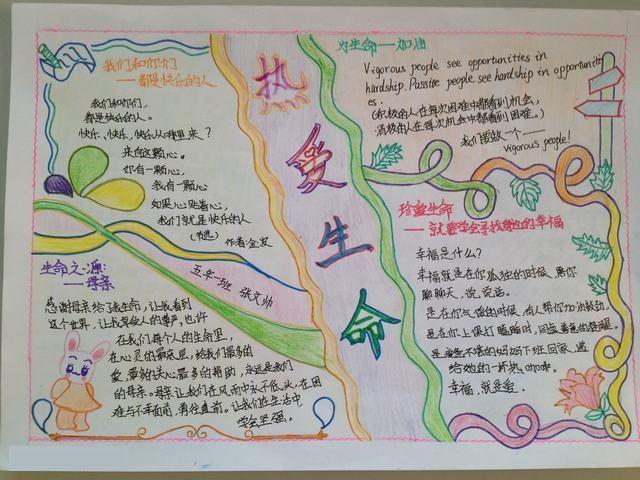 热爱生命
我们和你们
——都是快乐的人
我们和你们，
都是快乐的人。
快乐、快乐、快乐从哪里来？
来自这颗心。
你有一颗心，
我有一颗心
如果心贴着心，
我们就是快乐的人
(节选)
作者：金波
五年一班 张文帅
生命之源：
——母亲
感谢母亲给了我生命，让我看到
这个世界，让我享受人的尊严，也许
在我们每个人的生命里，
在心灵的最底层，给我们最多的
爱，最多的关心最多的帮助，永远是我们
的母亲。母亲让我们在风雨中永不低头，在困
难与不幸面前，勇往直前。让我们在生活中
学会坚强。
为生命——加油
Vigorous people see opportunities in
hardship. Passive people see hardship in opportuniti
es.
(积极的人在每次困难中都看到机会，
消极的人在每次机会中都看到困难。)
我们要做一个——
vigorous people!
珍重生命
——就要学会寻找它的幸福
幸福是什么？
幸福就是在你孤独的时候，陪你
聊聊天，说说话。
是在你气馁的时候，有人帮你加油鼓劲。
是在你上课打瞌睡时，同桌善意的提醒。
是妈妈下班回家，递
给她的一杯热咖啡。
幸福，就是爱．